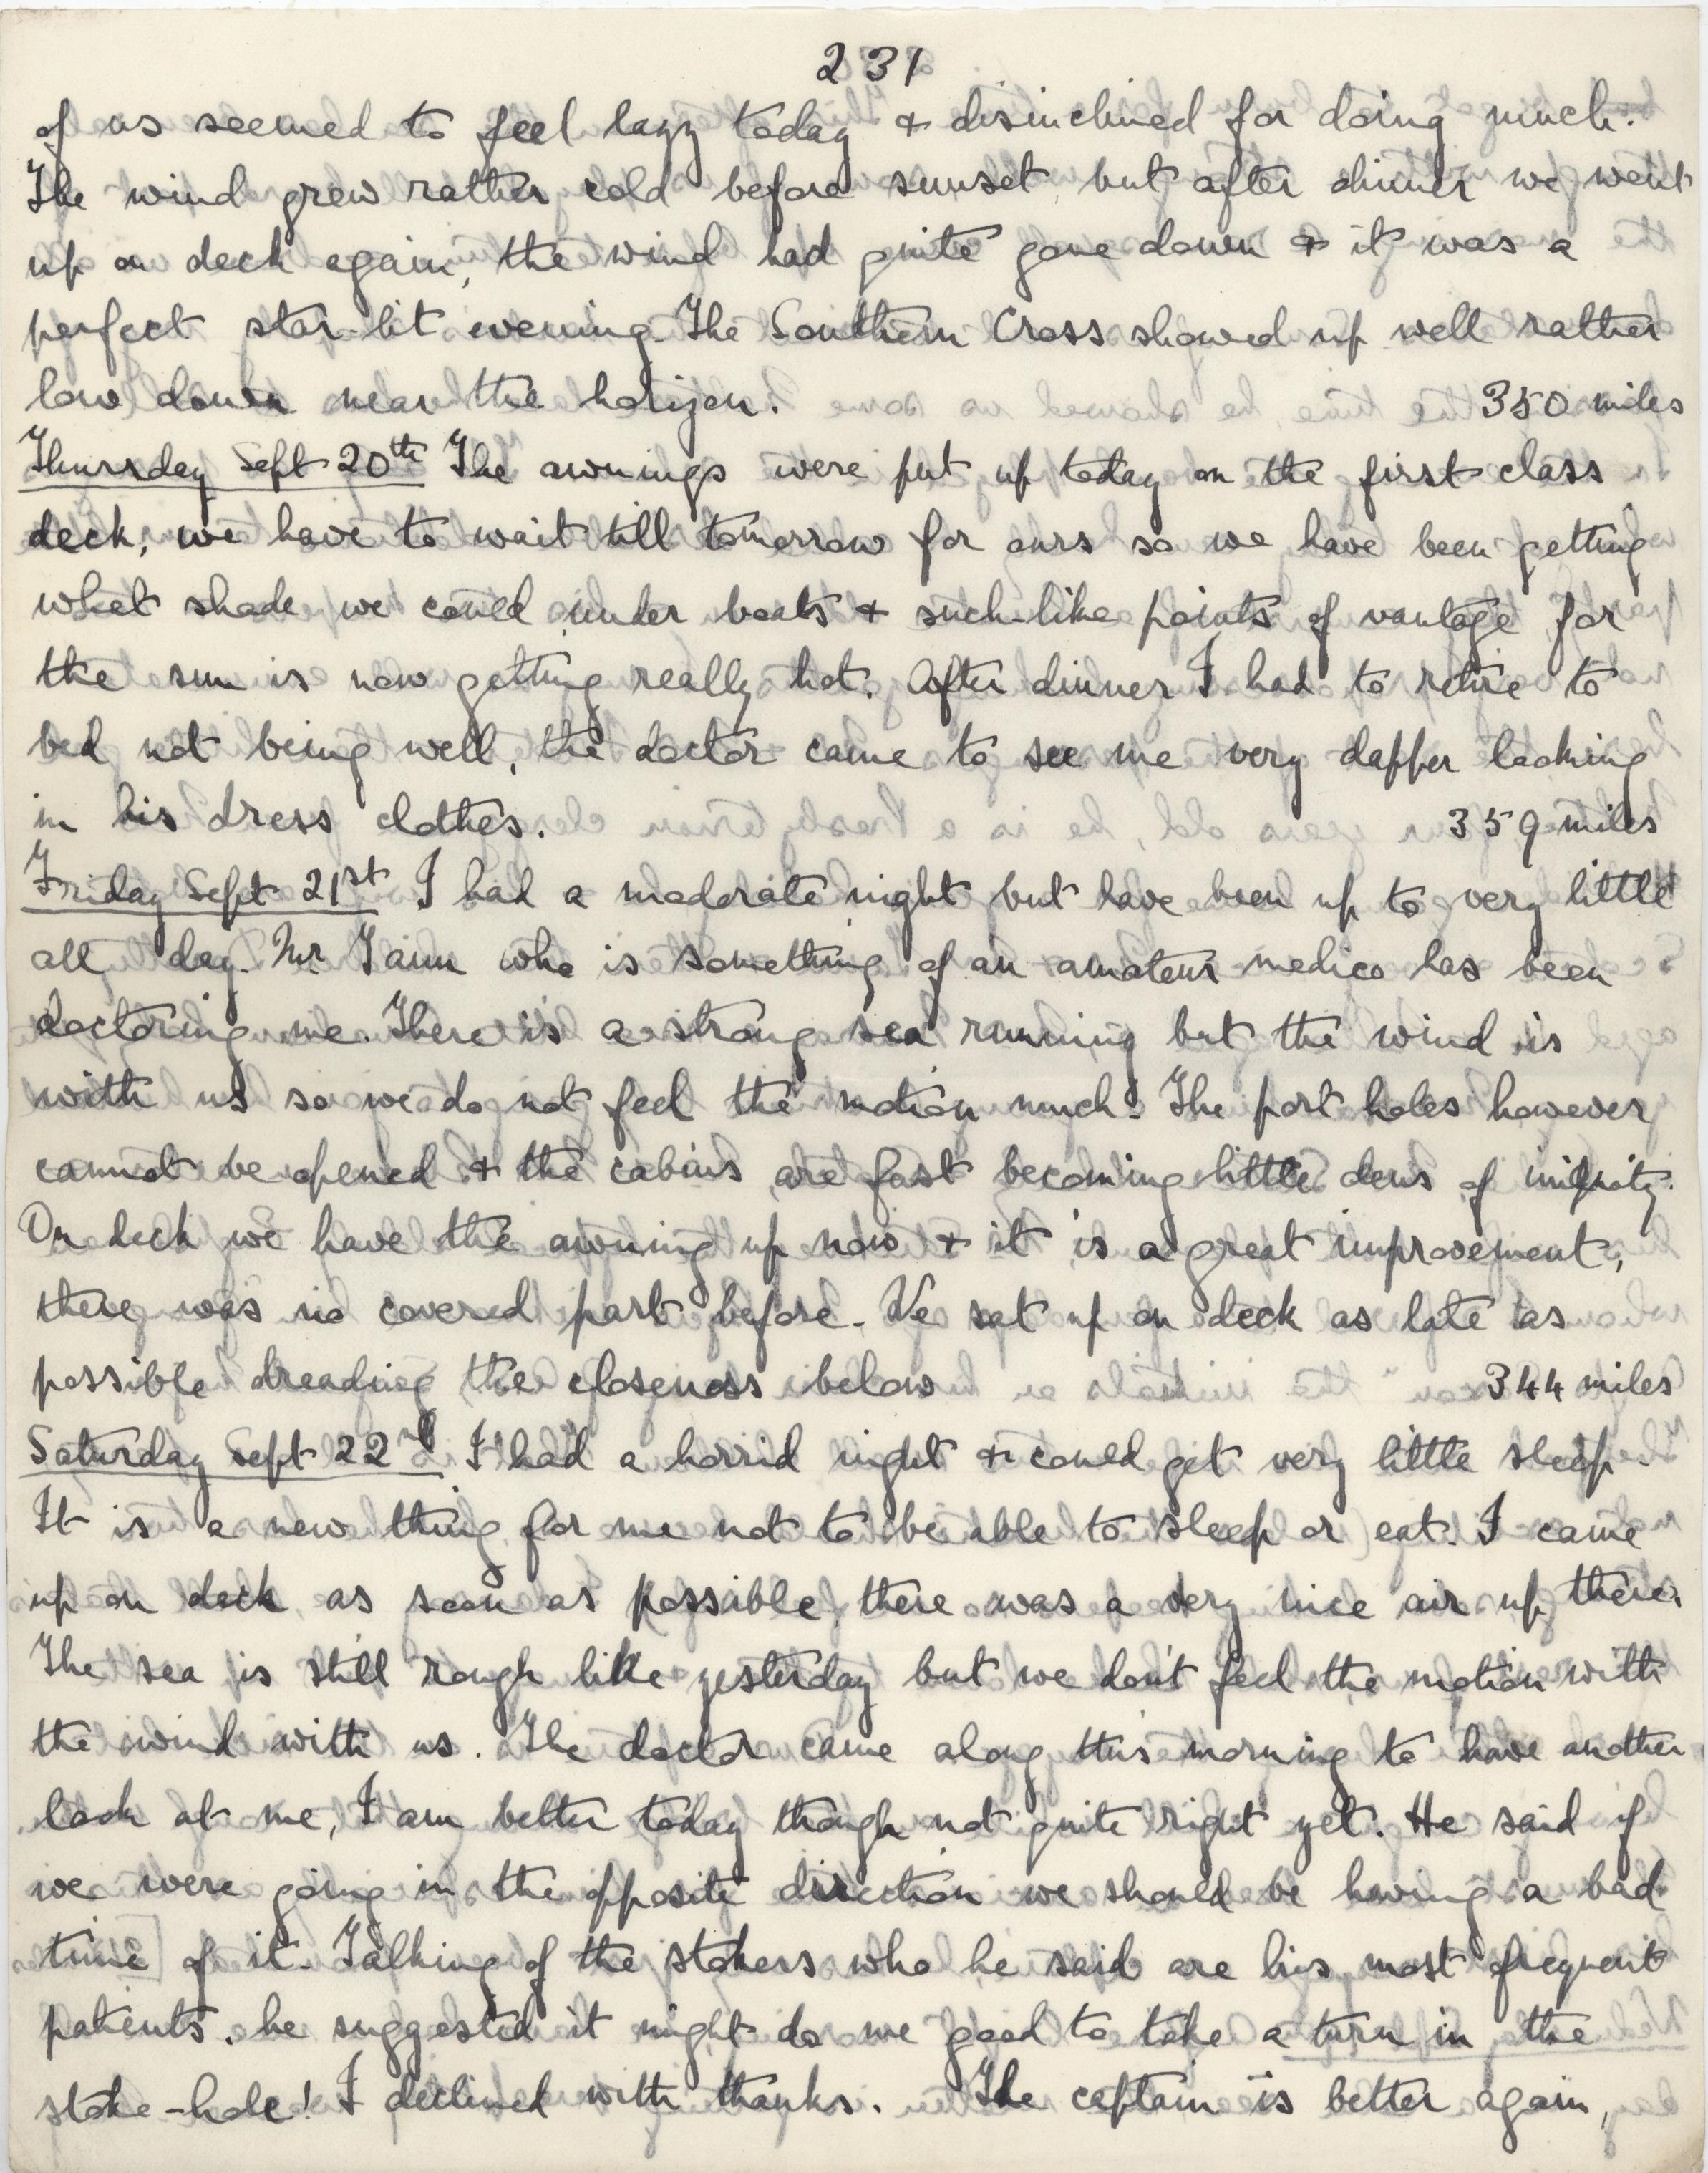 231
of us seemed to feel lazy today & disinclined for doing much.
The wind grew rather cold before sunset but after dinner we went
up on deck again, the wind had quite gone down & it was a
perfect star-lit evening. The Southern Cross showed up well rather
low down near the horizon. 350 miles
Thursday Sept 20th The awnings were put up today on the first class
deck, we have to wait till tomorrow for ours so we have been getting
what shade we could under boats & such-like points of vantage for
the sun is now getting really hot. After dinner I had to retire to
bed not being well, the doctor came to see me very dapper looking
in his dress clothes. 359 miles
Friday Sept 21st I had a moderate night but have been up to very little
all day. Mr. who is something of an amateur medico has been
doctoring me. There is a strong sea running but the wind is
with us so we do not feel the motion much. The port holes however
cannot be opened & the cabins are fast becoming little dens of iniquity.
On deck we have the awning up now & it is a great improvement,
there was no covered part before. We sat up on deck as late as
possible dreading the closeness below 344 miles
Saturday Sept 22nd I had a horrid night & could get very little sleep.
It is a new thing for me not to be able to sleep or eat. I came
up on deck as soon as possible, there was a very nice air up there.
The sea is still rough like yesterday but we don't feel the motion with
the wind with us. The doctor came along this morning to have another
look at me, I am better today though not quite right yet. He said if
we were going in the opposite direction we should be having a bad
time of it. Talking of the stokers who he said are his most frequent
patients, he suggested it might do me good to take a turn in the
stoke-hole! I declined with thanks. The captain is better again,